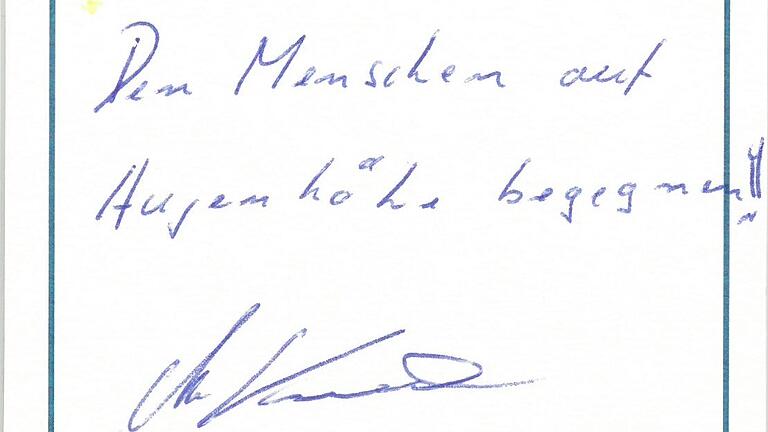 Den Menschen auf
Augenhöhe begegnen!!